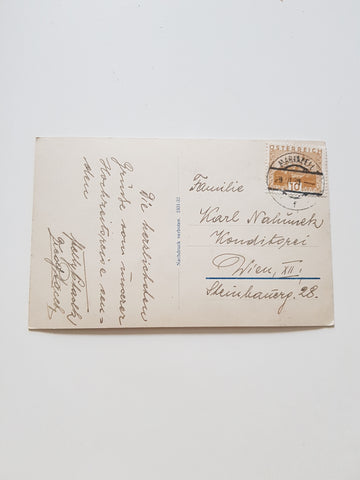 Die herzlichsten
Grüße von unserer
Hochzeitsreise sen-
den
Nachdruck verboten. 1931-32
MARIAZELL
ÖSTERREICH
10
Familie
Karl Nahunek
Konditorei
Wien, XII.,
Steinbauerg. 28.